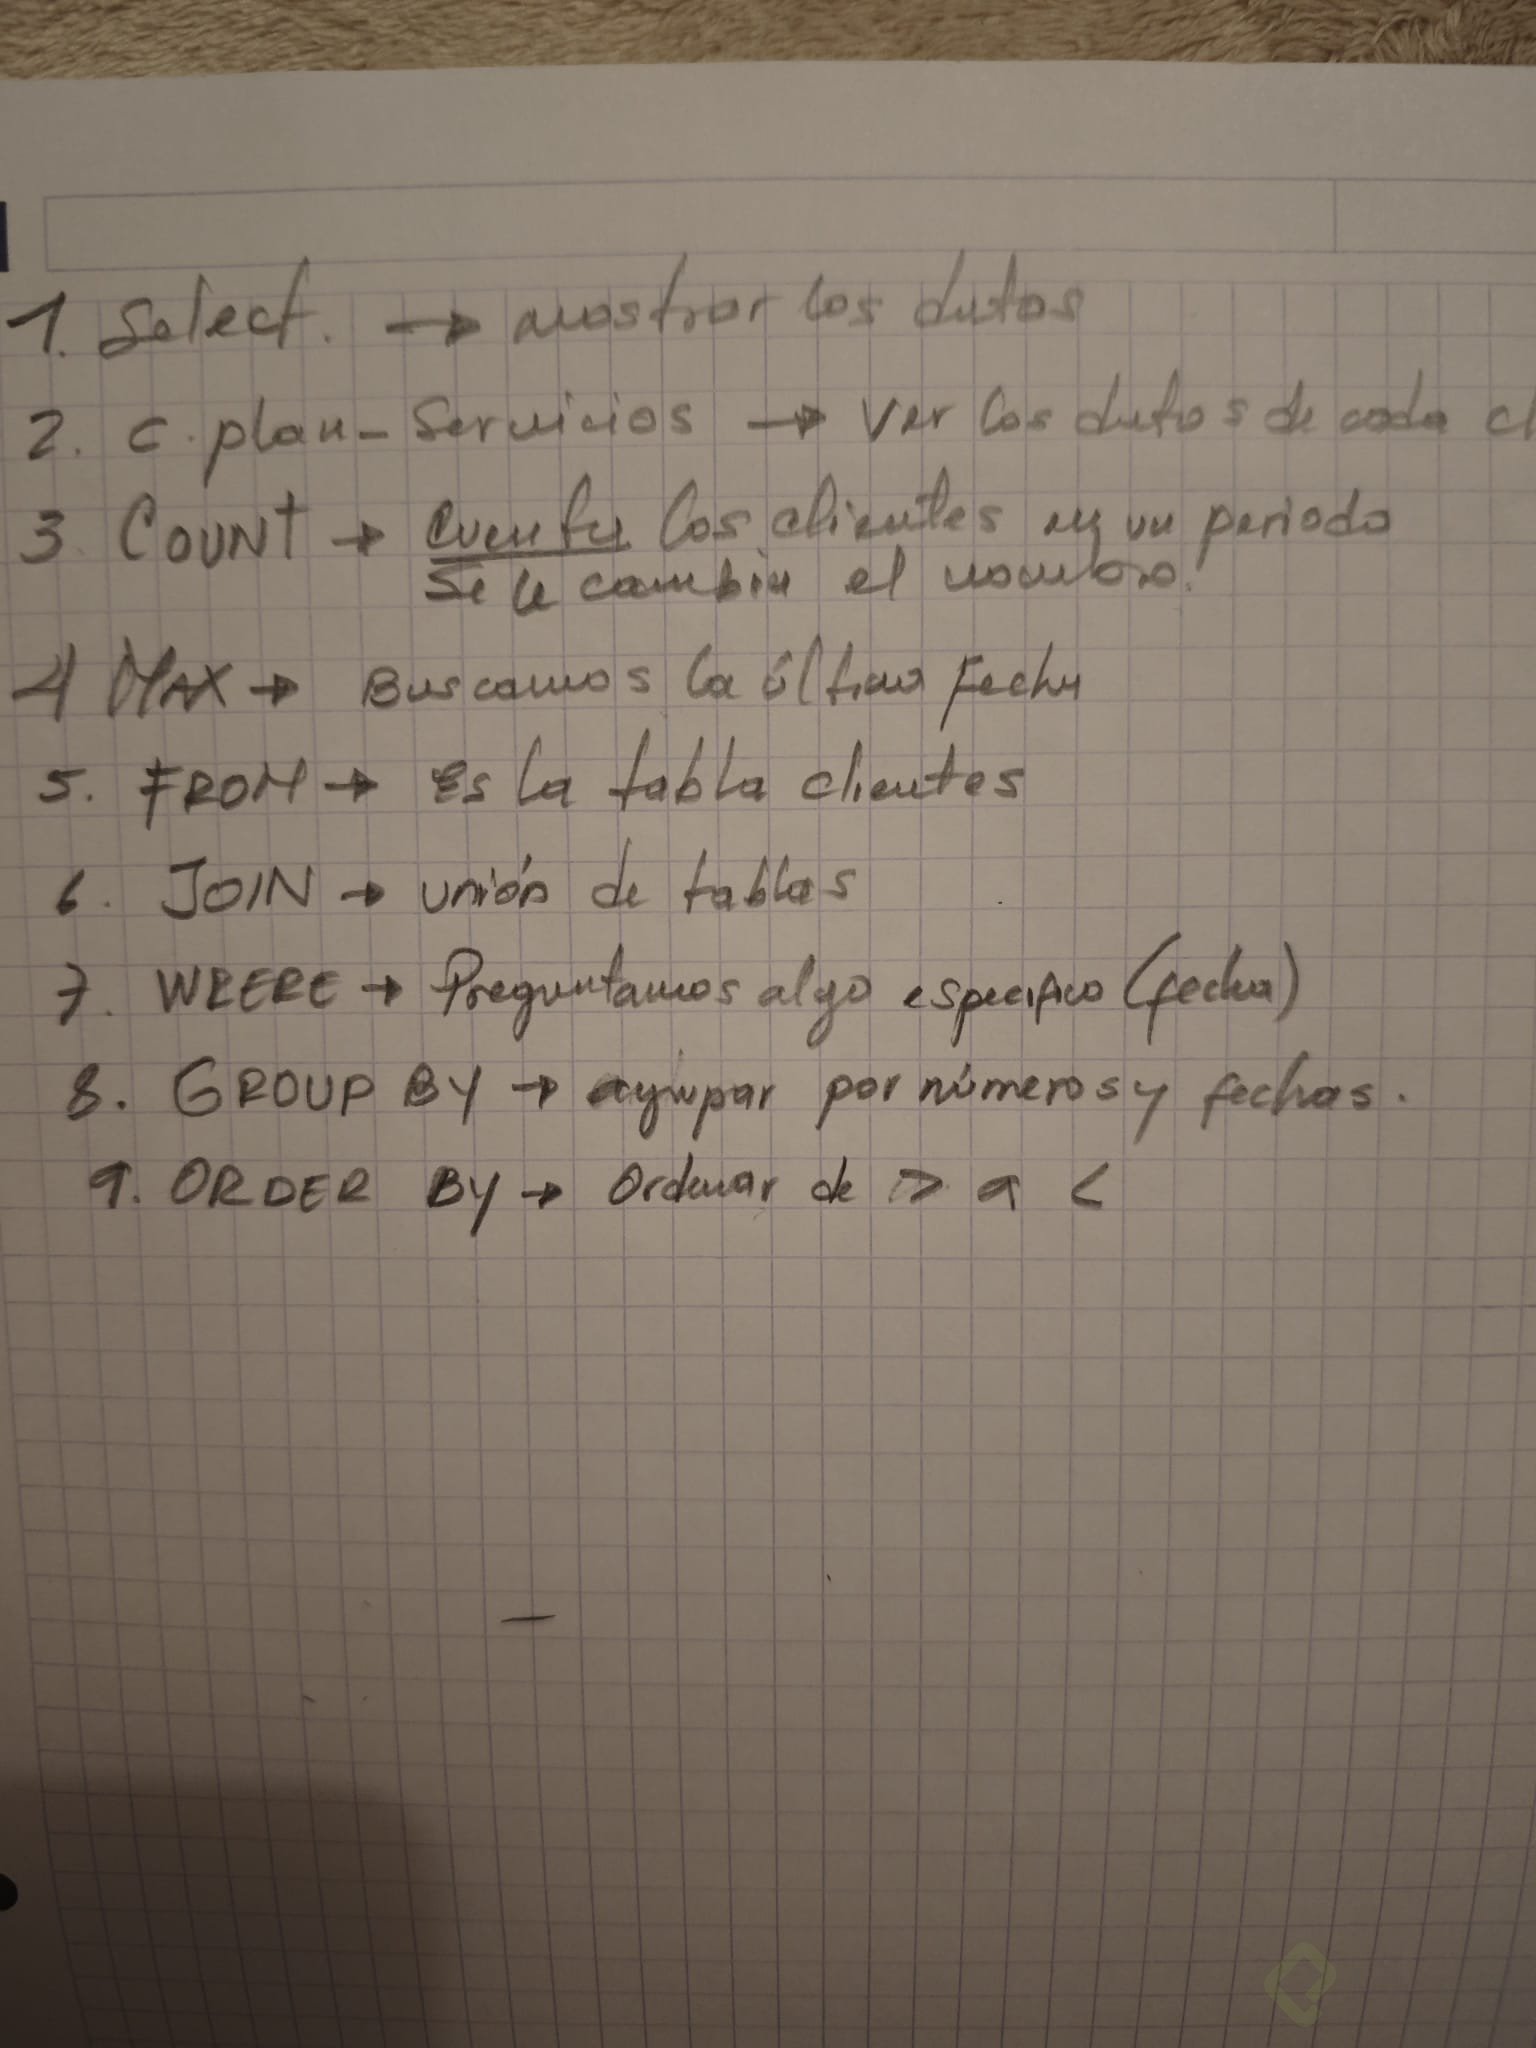 1. Select. → mostrar los datos
2. c.plan-Servicios → Ver los datos de cada cl
3 COUNT → Cuenta los clientes en un periodo
Se le cambia el nombre.
4 MAX → Buscamos la última Fecha
5. FROM → Es la tabla clientes
6. JOIN → unión de tablas
7. WHERE → Preguntamos algo especifico (fecha)
8. GROUP BY → agrupar por números y fechas.
9. ORDER BY → Ordenar de > a <